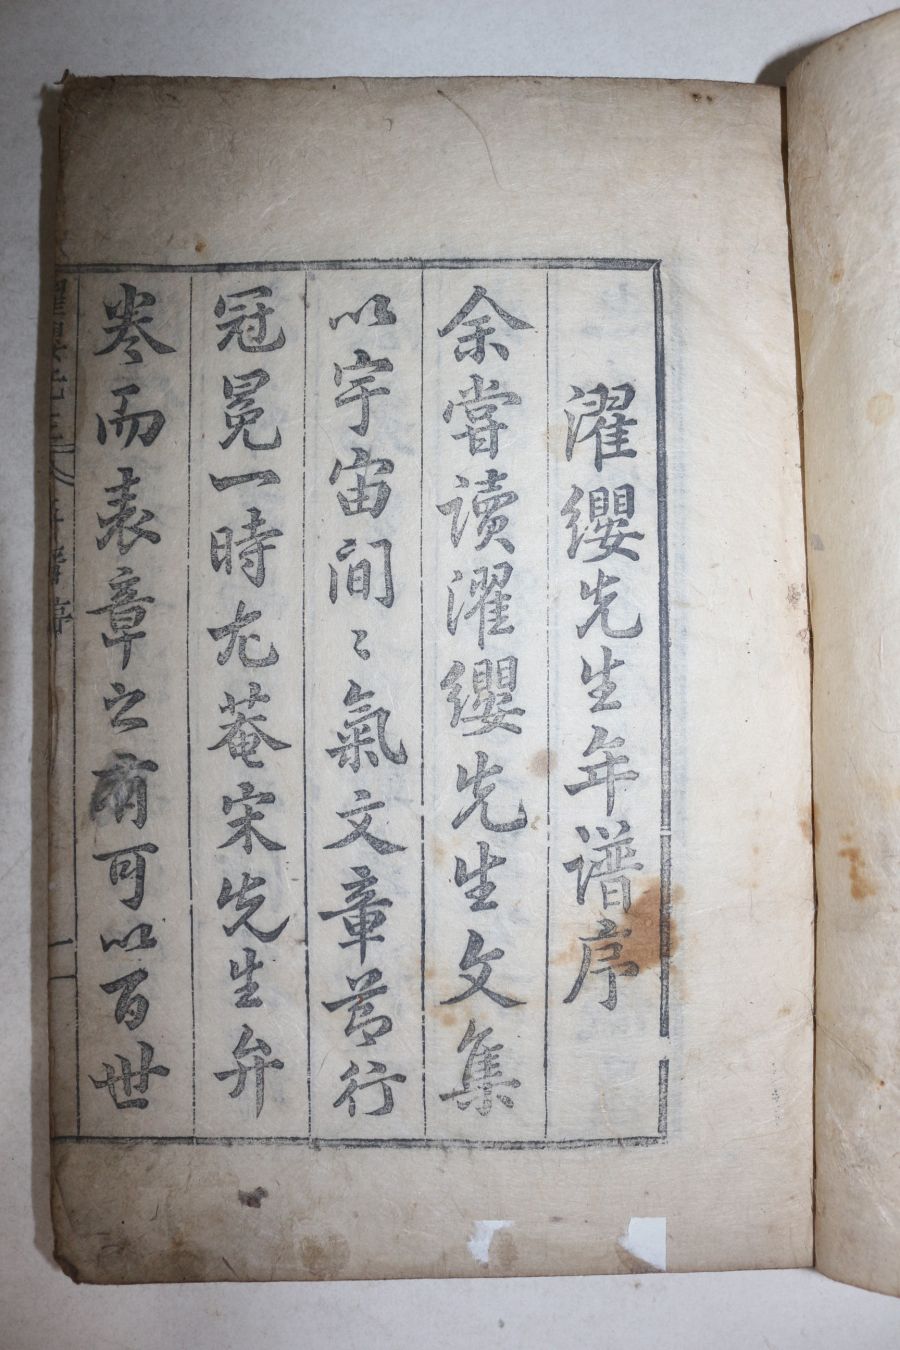 濯纓先生年譜序
余嘗讀濯纓先生文集
以宇宙間〻氣文章節行
冠冕一時尤菴宋先生弁
卷而表章之有可以百世